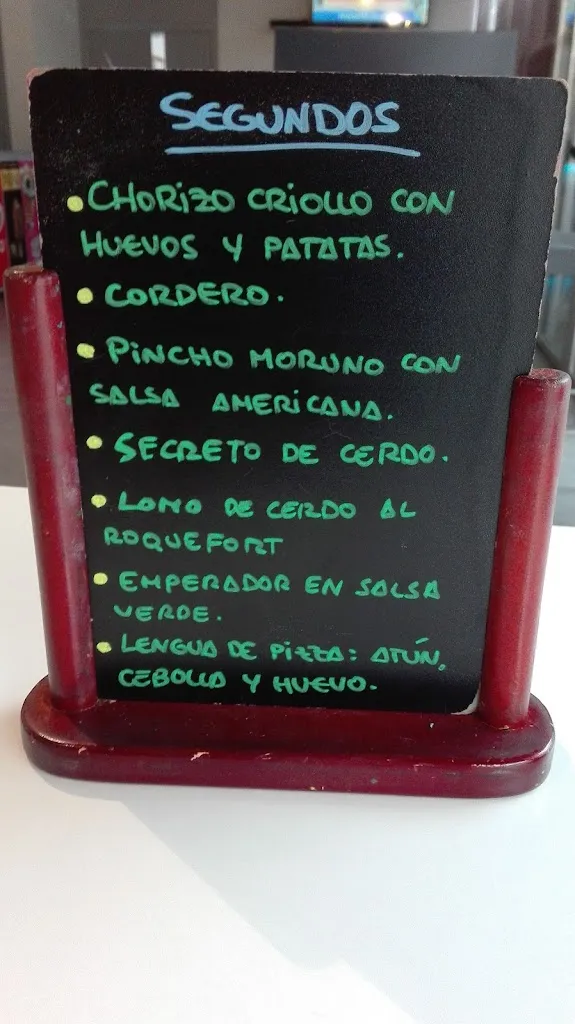 SEGUNDOS
• CHORIZO CRIOLLO CON
HUEVOS Y PATATAS.
• CORDERO.
• PINCHO MORUNO CON
SALSA AMERICANA.
• SECRETO DE CERDO.
• LOMO DE CERDO AL
ROQUEFORT
• EMPERADOR EN SALSA
VERDE.
• LENGUA DE PIZZA: ATÚN,
CEBOLLA Y HUEVO.